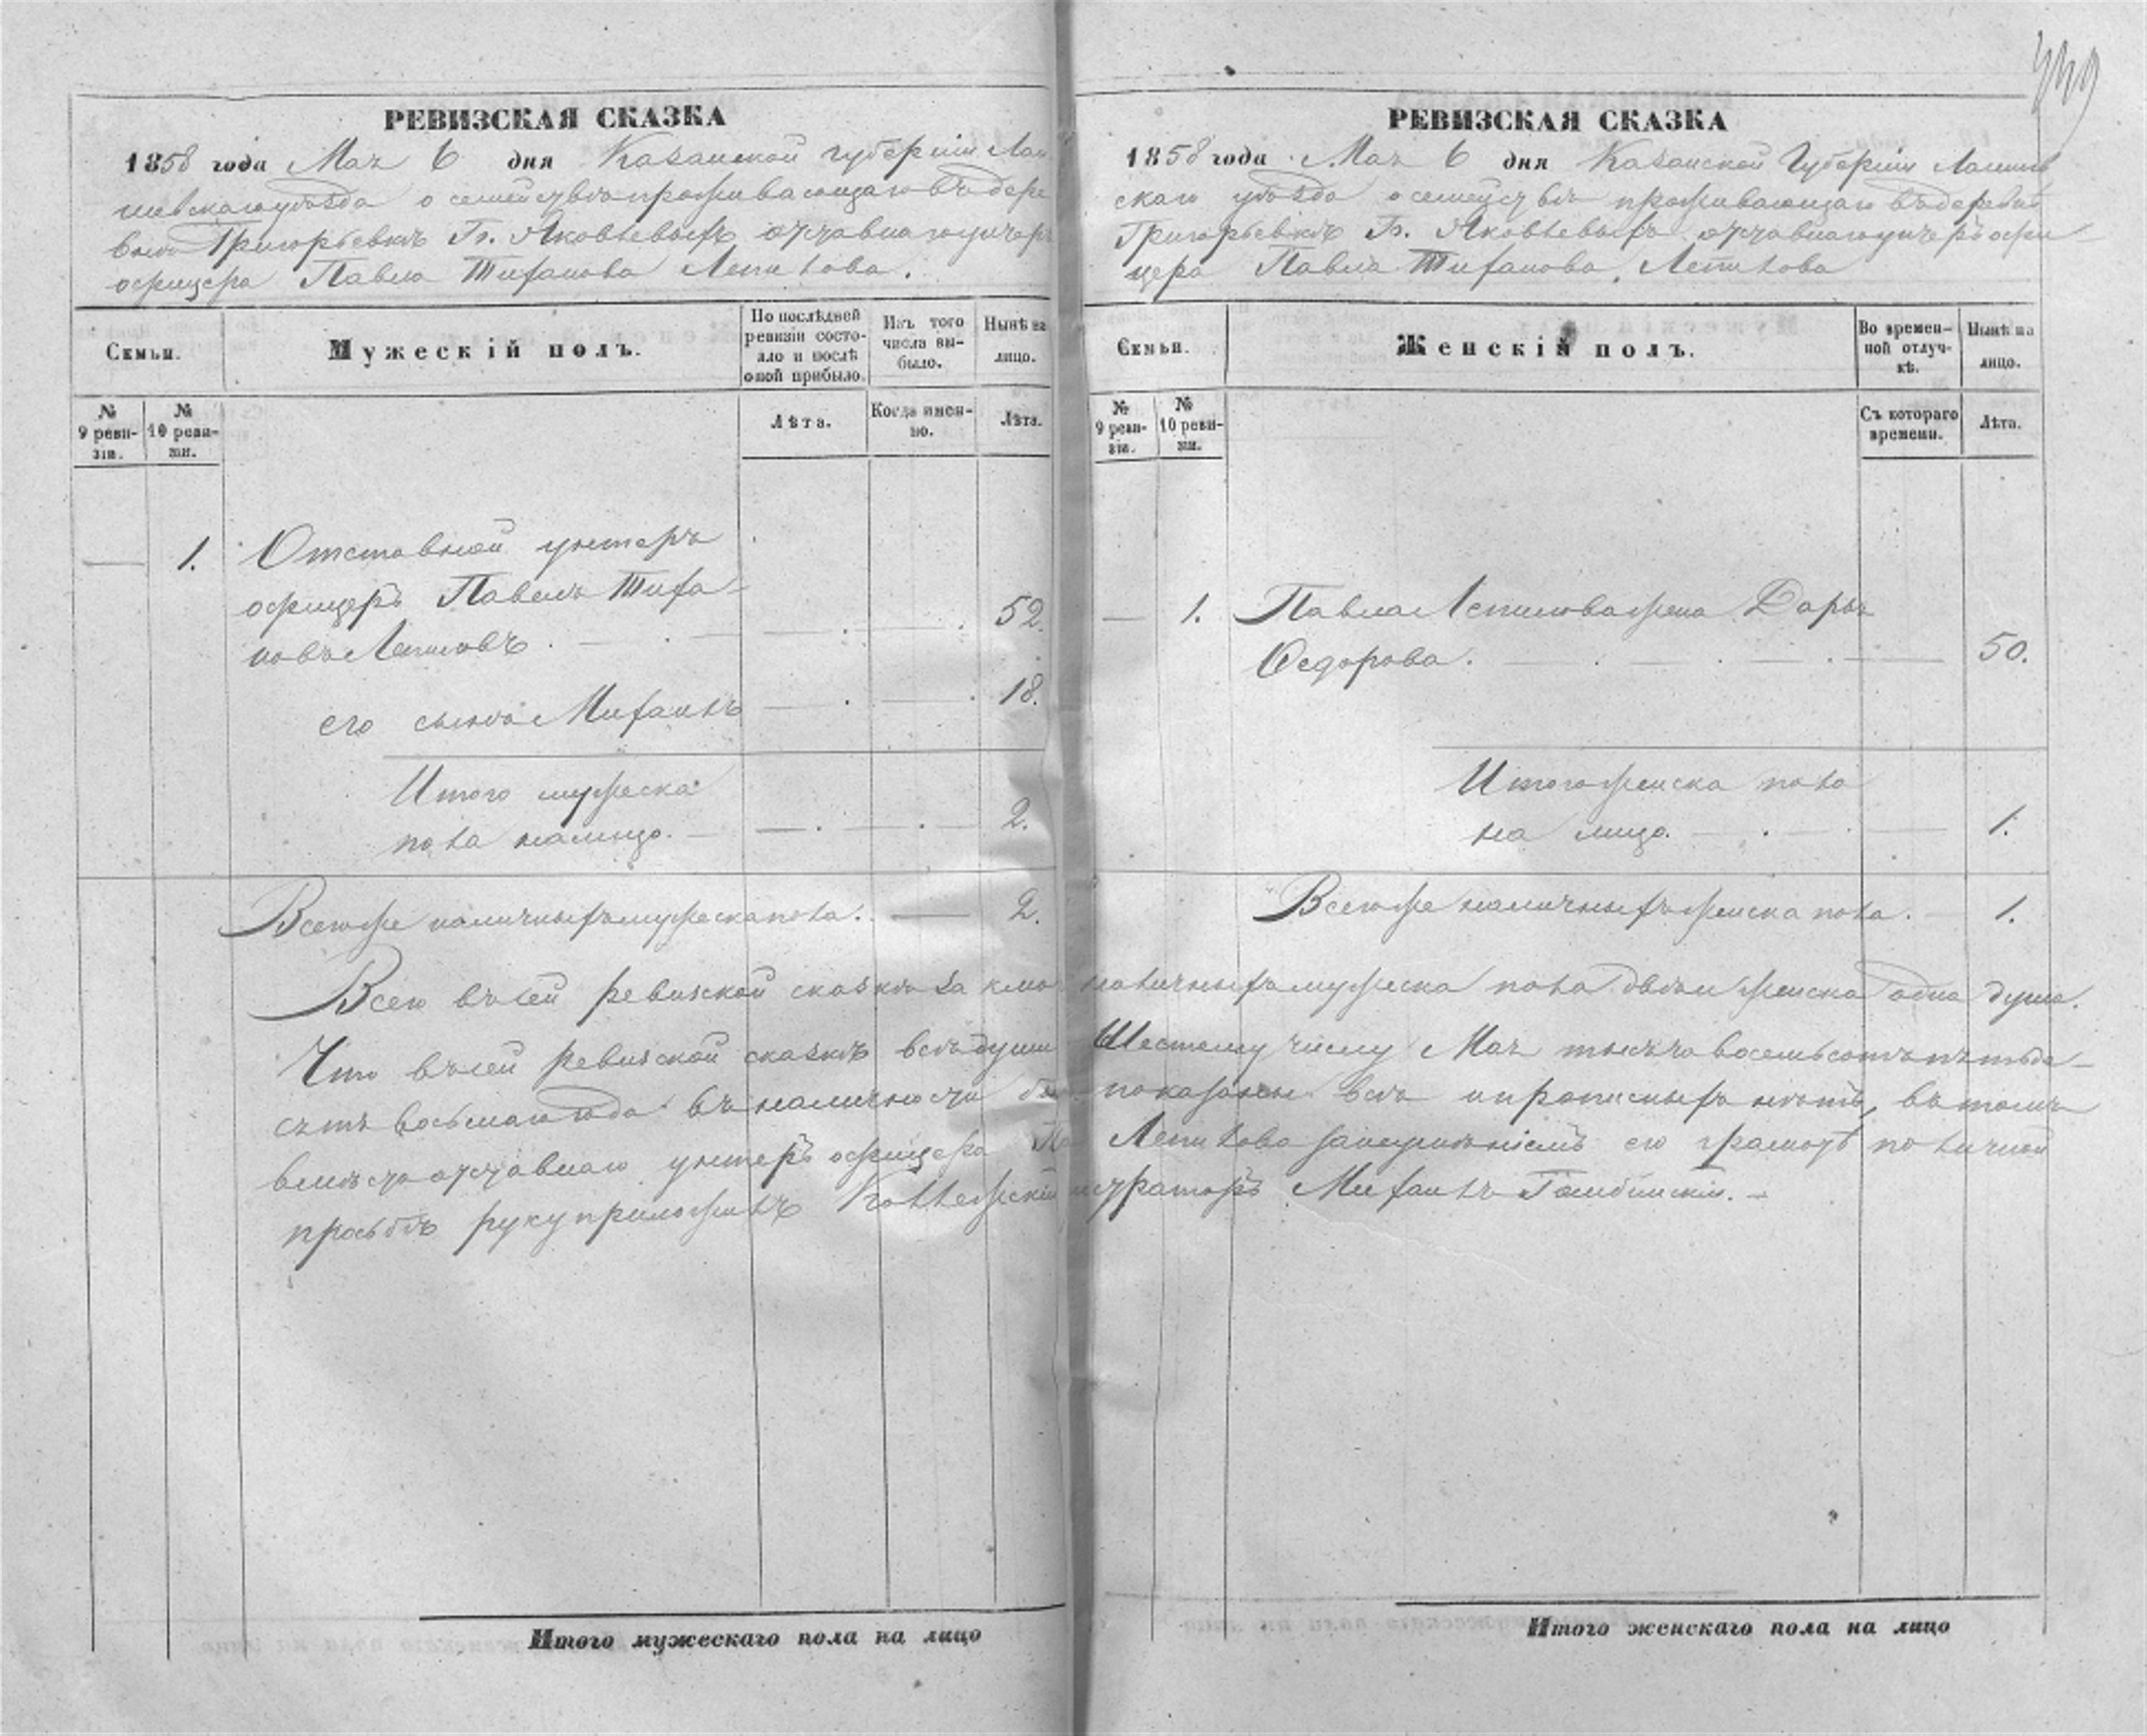 РЕВИЗСКАЯ СКАЗКА
1858 года Мая 6 дня Казанской губерніи Лаи
шевскаго уѣзда о семействѣ проживающаго въ дере
вни Григорьевкѣ Гг. Яковлевыхъ отставнаго унтеръ
офицера Павла Тифанова Лепилова.
Семьи.
Мужескій полъ.
По послѣдней ревизіи состояло и послѣ оной прибыло.
Изъ того числа выбыло.
Нынѣ на лицо.
№ 9 ревизіи.
№ 10 ревизіи.
Лѣта.
Когда именно.
Лѣта.
1. Отставной унтеръ
офицеръ Павелъ Тифа-
новъ Лепиловъ. 52.
его сынъ Михаилъ 18.
Итого мужеска
пола налицо. 2.
Всего же наличныхъ мужеска пола. 2.
РЕВИЗСКАЯ СКАЗКА
1858 года Мая 6 дня Казанской Губерніи Лаишев
скаго уѣзда о семействѣ проживающаго въ деревнѣ
Григорьевкѣ Гг. Яковлевыхъ отставнаго унтеръ офи-
цера Павла Тифанова Лепилова
Семьи.
Женскій полъ.
Во временной отлучкѣ.
Нынѣ на лицо.
№ 9 ревизіи.
№ 10 ревизіи.
Съ котораго времени.
Лѣта.
1. Павла Лепилова жена Дарья
Федорова. 50.
Итого женска пола
на лицо. 1.
Всего же наличныхъ женска пола. 1.
Всего въ сей ревизской сказкѣ за наличныхъ мужеска пола двѣ и женска одна душа.
Что въ сей ревизской сказкѣ всѣ души Шестому числу Мая тысяча восемьсотъ пятьде-
сятъ восьмаго года въ наличности показаны всѣ и прописныхъ нѣтъ, въ томъ
вмѣсто отставнаго унтеръ офицера Лепилова за неумѣніемъ его грамотѣ по личной
просьбѣ руку приложилъ Коллежскій истраторъ Михаилъ
Итого мужескаго пола на лицо
Итого женскаго пола на лицо